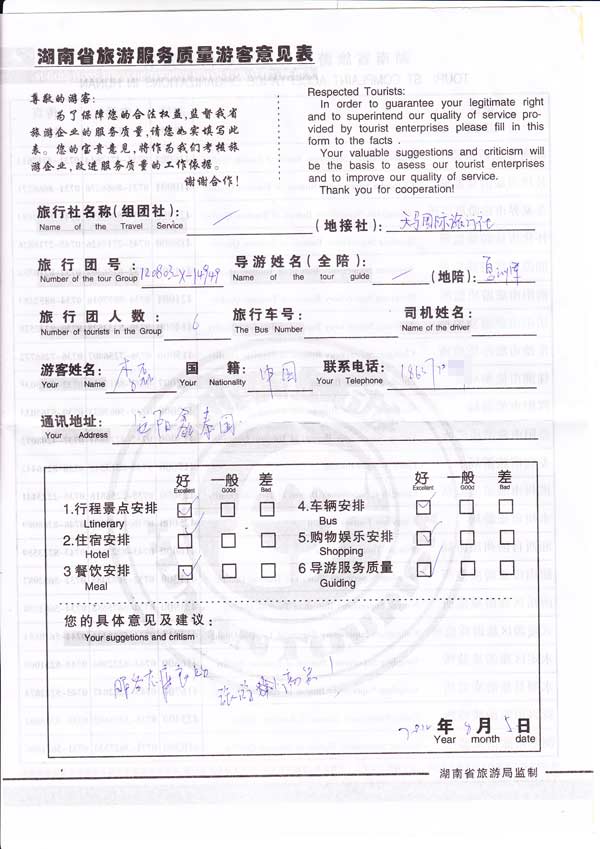 湖南省旅游服务质量游客意见表
尊敬的游客:
为了保障您的合法权益,监督我省
旅游企业的服务质量,请您如实填写此
表。您的宝贵意见,将作为我们考核旅
游企业,改进服务质量的工作依据。
谢谢合作!
Respected Tourists:
In order to guarantee your legitimate right
and to superintend our quality of service pro-
vided by tourist enterprises please fill in this
form to the facts .
Your valuable suggestions and criticism will
be the basis to assess our tourist enterprises
and to improve our quality of service.
Thank you for cooperation!
旅行社名称(组团社): / (地接社): 天马国际旅行社
Name of the Travel Service
旅行团号: 120803-X-14949 导游姓名(全陪): / (地陪):
Number of the tour Group Name of the tour guide
旅行团人数: 6 旅行车号: 司机姓名:
Number of tourists in the Group The Bus Number Name of the driver
游客姓名: 李磊 国籍: 中国 联系电话:
Your Name Your Nationality Your Telephone
通讯地址: 岳阳鑫泰国
Your Address
好 一般 差 好 一般 差
Excellent G00d Bad Excellent G00d Bad
1.行程景点安排 4.车辆安排
Ltinerary Bus
2.住宿安排 5.购物娱乐安排
Hotel Shopping
3 餐饮安排 6 导游服务质量
Meal Guiding
您的具体意见及建议:
Your suggetions and critism
服务态度
2012 年 8 月 5 日
Year month date
湖南省旅游局监制